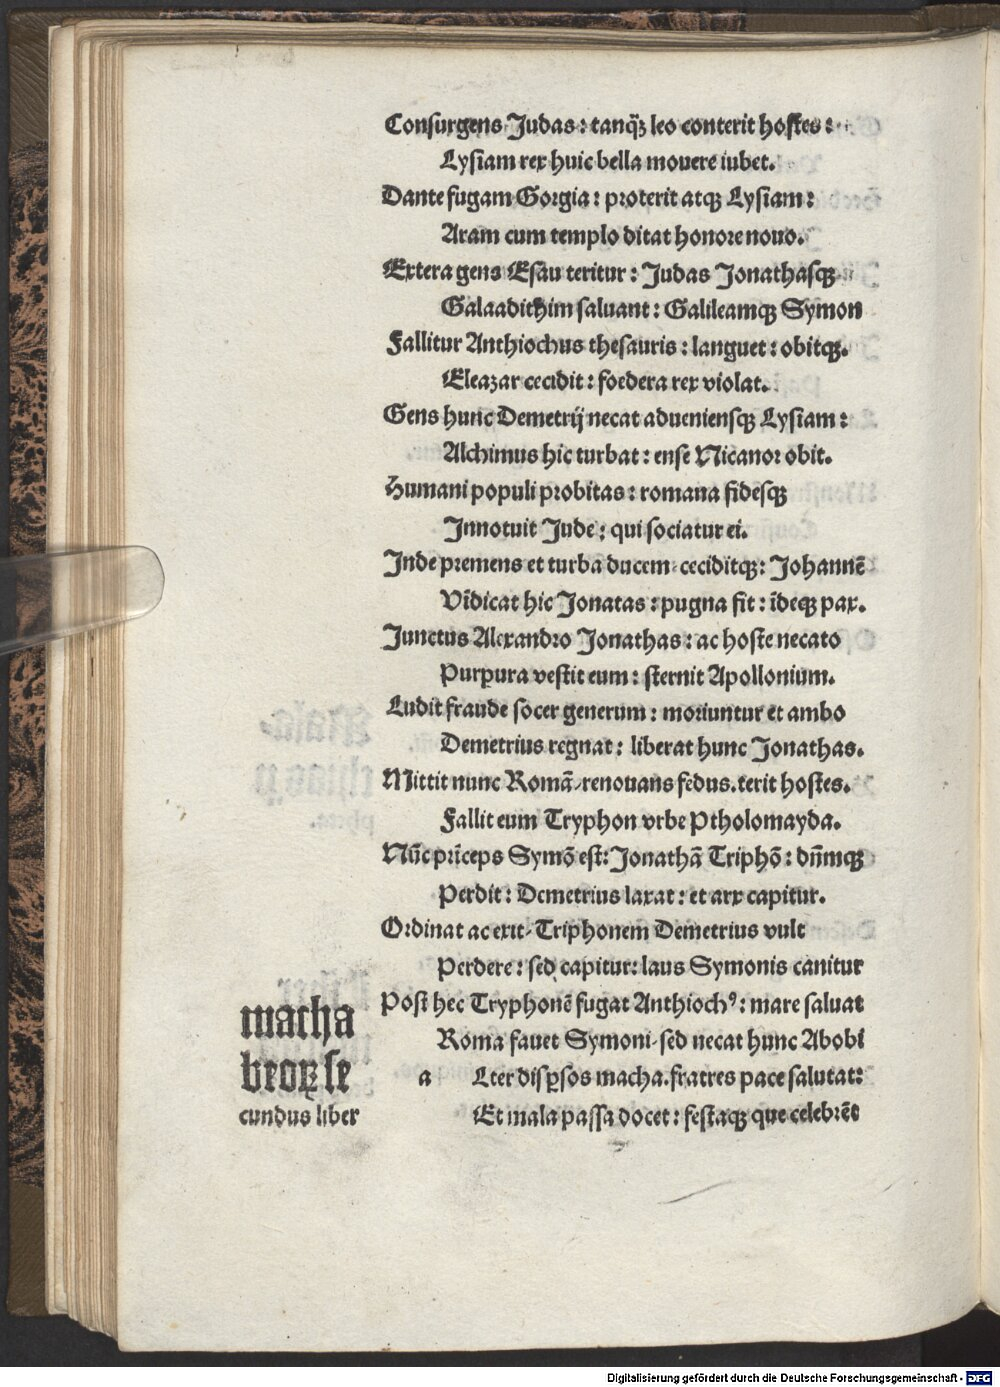 Consurgens Judas: tanq̃ȝ leo conterit hostes:
Lysiam rex huic bella mouere iubet.
Dante fugam Gorgia: proterit atqȝ Lysiam:
Aram cum templo ditat honore nouo.
Extera gens Esau teritur: Judas Jonathasqȝ
Galaadithim saluant: Galileamqȝ Symon
Fallitur Anthiochus thesauris: languet: obitqȝ.
Eleazar cecidit: foedera rex violat.
Gens hunc Demetrij necat adueniensqȝ Lysiam:
Alchimus hic turbat: ense Nicanor obit.
Humani populi probitas: romana fidesqȝ
Innotuit Jude: qui sociatur ei.
Inde premens et turba ducem: ceciditqȝ: Johannē
Vīdicat hic Jonatas: pugna fit: īdeqȝ pax.
Junctus Alexandro Jonathas: ac hoste necato
Purpura vestit eum: sternit Apollonium.
Ludit fraude socer generum: moriuntur et ambo
Demetrius regnat: liberat hunc Jonathas.
Mittit nunc Romā, renouans fedus. terit hostes.
Fallit eum Tryphon vrbe Ptholomayda.
Nūc prīceps Symō est: Jonathā Triphō: dn̄mqȝ
Perdit: Demetrius laxat: et arx capitur.
Ordinat ac exit, Triphonem Demetrius vult
Perdere: sed capitur: laus Symonis canitur
Post hec Tryphonē fugat Anthiochꝰ: mare saluat
Roma fauet Symoni, sed necat hunc Abobi
macha
beoꝝ se
cundus liber
a Lter disꝑsos macha. fratres pace salutat:
Et mala passa docet: festaqȝ que celebrēt
Digitalisierung gefördert durch die Deutsche Forschungsgemeinschaft - DFG